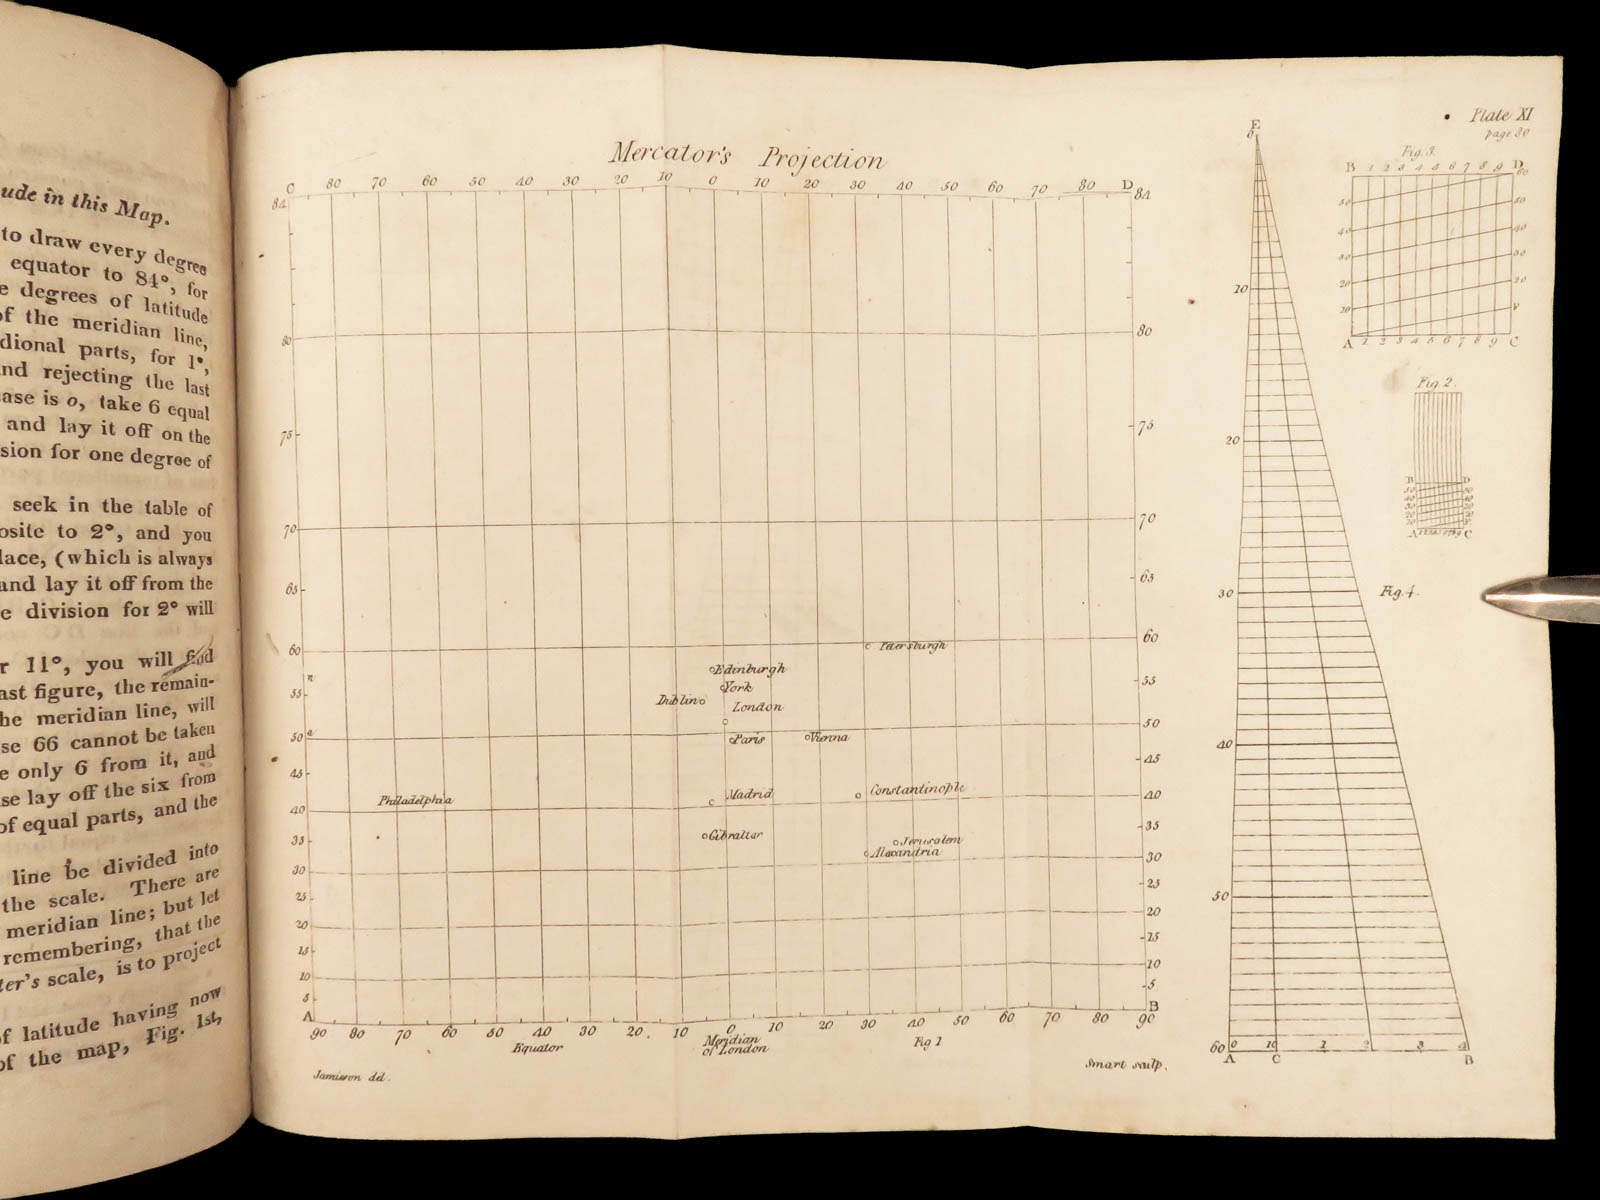 ude in this Map.
to draw every degree
equator to 84°, for
e degrees of latitude
of the meridian line,
dional parts, for 1°,
nd rejecting the last
ase is o, take 6 equal
and lay it off on the
sion for one degree of
seek in the table of
osite to 2°, and you
lace, (which is always
and lay it off from the
e division for 2° will
r 11°, you will find
ast figure, the remain-
he meridian line, will
se 66 cannot be taken
e only 6 from it, and
se lay off the six from
of equal parts, and the
line be divided into
the scale. There are
meridian line; but let
remembering, that the
ter's scale, is to project
of latitude having now
of the map, Fig. 1st,
Plate XI
page 80
Mercator's Projection
C 80 70 60 50 40 30 20 10 0 10 20 30 40 50 60 70 80 D
84 84
80 80
75 75
70 70
65 65
60 60
Petersburgh
Edinburgh
55 York 55
Dublin
London
50 50
Paris Vienna
45 45
Madrid Constantinople
Philadelphia
40 40
Gibraltar
35 35
Jerusalem
Alexandria
30 30
25 25
20 20
15 15
10 10
5 5
A B
90 80 70 60 50 40 30 20 10 0 10 20 30 40 50 60 70 80 90
Equator
Meridian
of London
Fig 1
Jamieson del.
Smart sculp.
E
0
10
20
30
40
50
60 0 10 1 2 3 4
A C B
Fig. 4
Fig. 3.
B 1 2 3 4 5 6 7 8 9 D
60
50 50
40 40
30 30
20 20
10 F
A 1 2 3 4 5 6 7 8 9 C
Fig. 2.
B D
50 50
40 40
30 30
20 20
10 F
A C